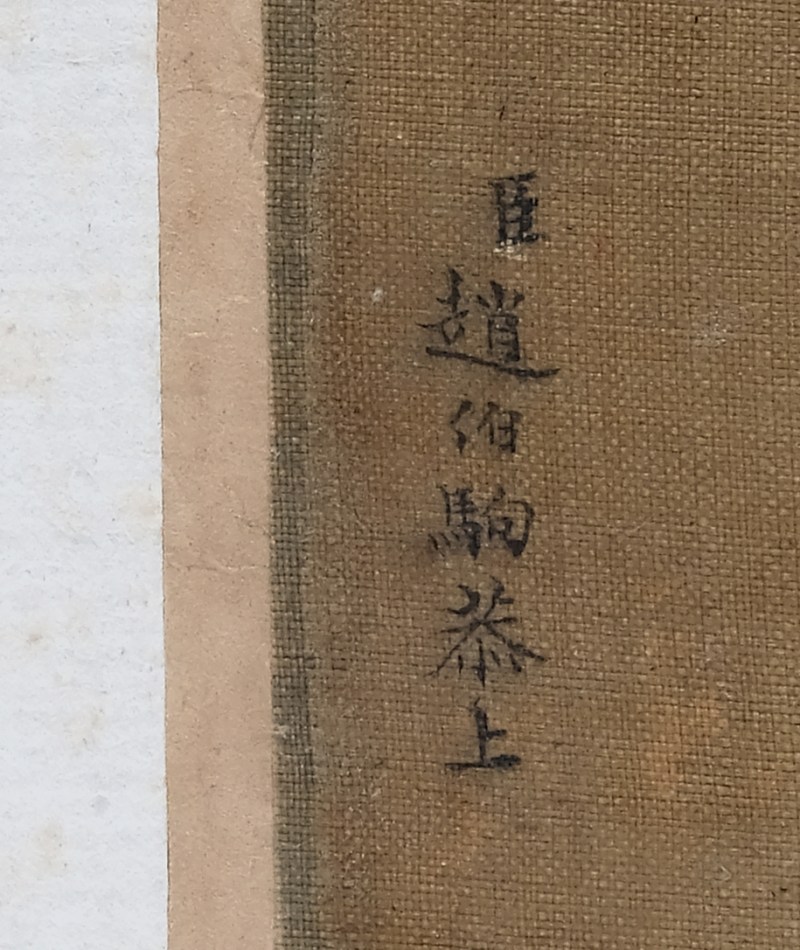 臣趙伯駒恭上